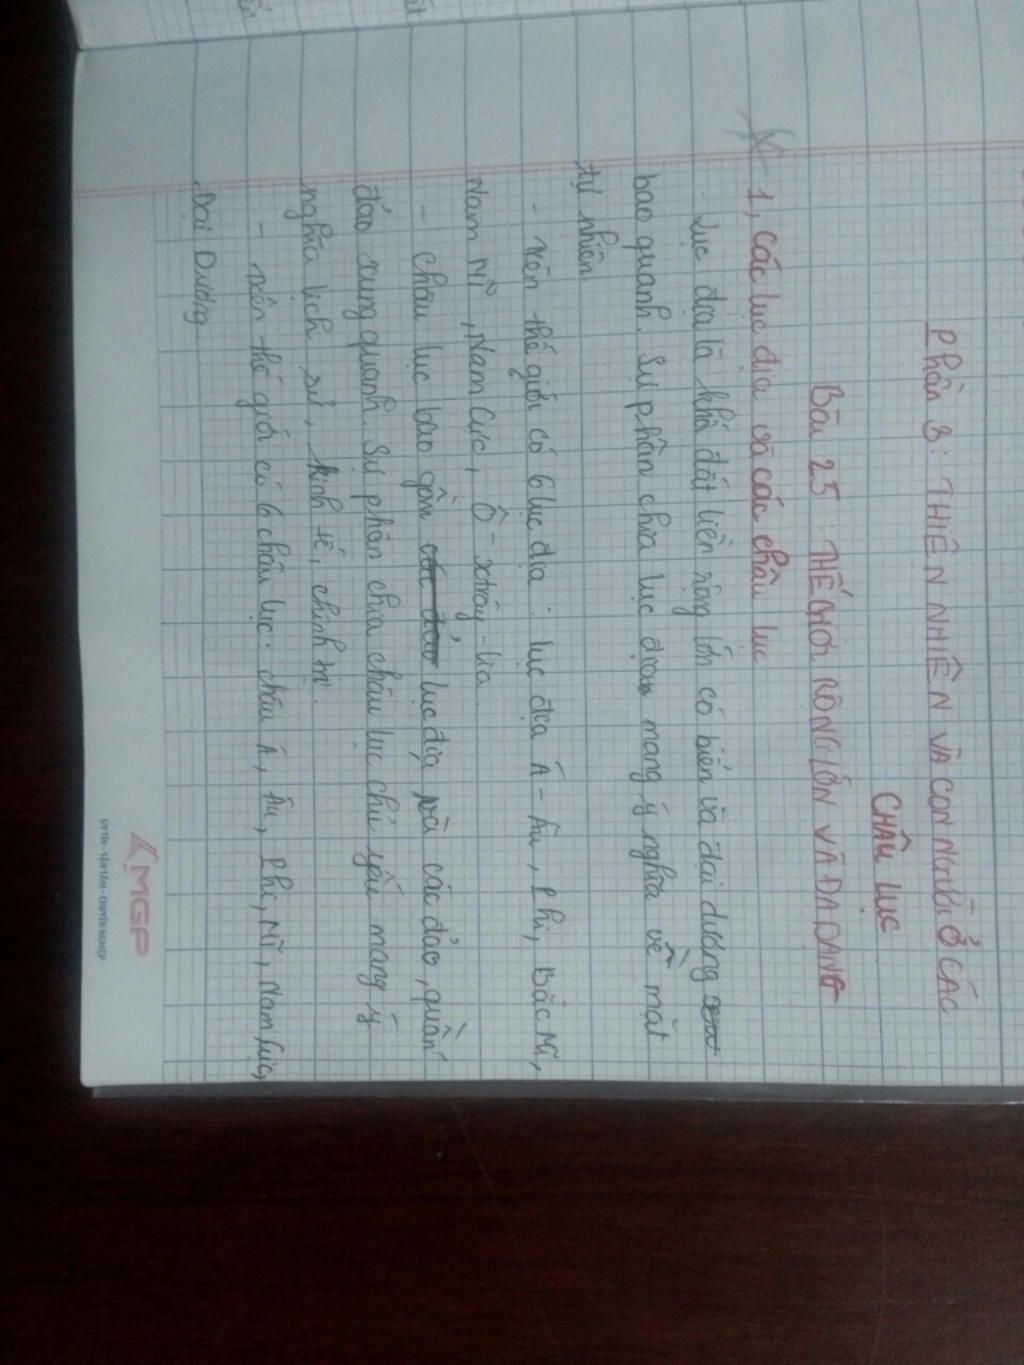 Phần 3: THIÊN NHIÊN VÀ CON NGƯỜI Ở CÁC
CHÂU LỤC
Bài 25: THẾ GIỚI RỘNG LỚN VÀ ĐA DẠNG
1, Các lục địa và các châu lục
- Lục địa là khối đất liền rộng lớn có biển và đại dương
bao quanh. Sự phân chia lục địa mang ý nghĩa về mặt
tự nhiên.
- Trên thế giới có 6 lục địa: lục địa Á - Âu, Phi, Bắc Mĩ,
Nam Mĩ, Nam Cực, Ô-xtrây-lia.
- Châu lục bao gồm các đảo lục địa và các đảo, quần
đảo xung quanh. Sự phân chia châu lục chủ yếu mang ý
nghĩa lịch sử, kinh tế, chính trị.
- Trên thế giới có 6 châu lục: châu Á, Âu, Phi, Mĩ, Nam Cực,
Đại Dương
MGP
UY TÍN - TẬN TÂM - CHUYÊN NGHIỆP